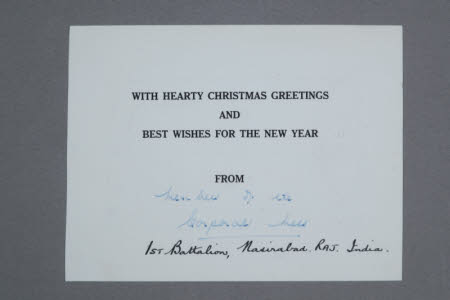 WITH HEARTY CHRISTMAS GREETINGS
AND
BEST WISHES FOR THE NEW YEAR
FROM
Members of the
Corporals Mess
1ST Battalion, Nasirabad. RAJ. India.